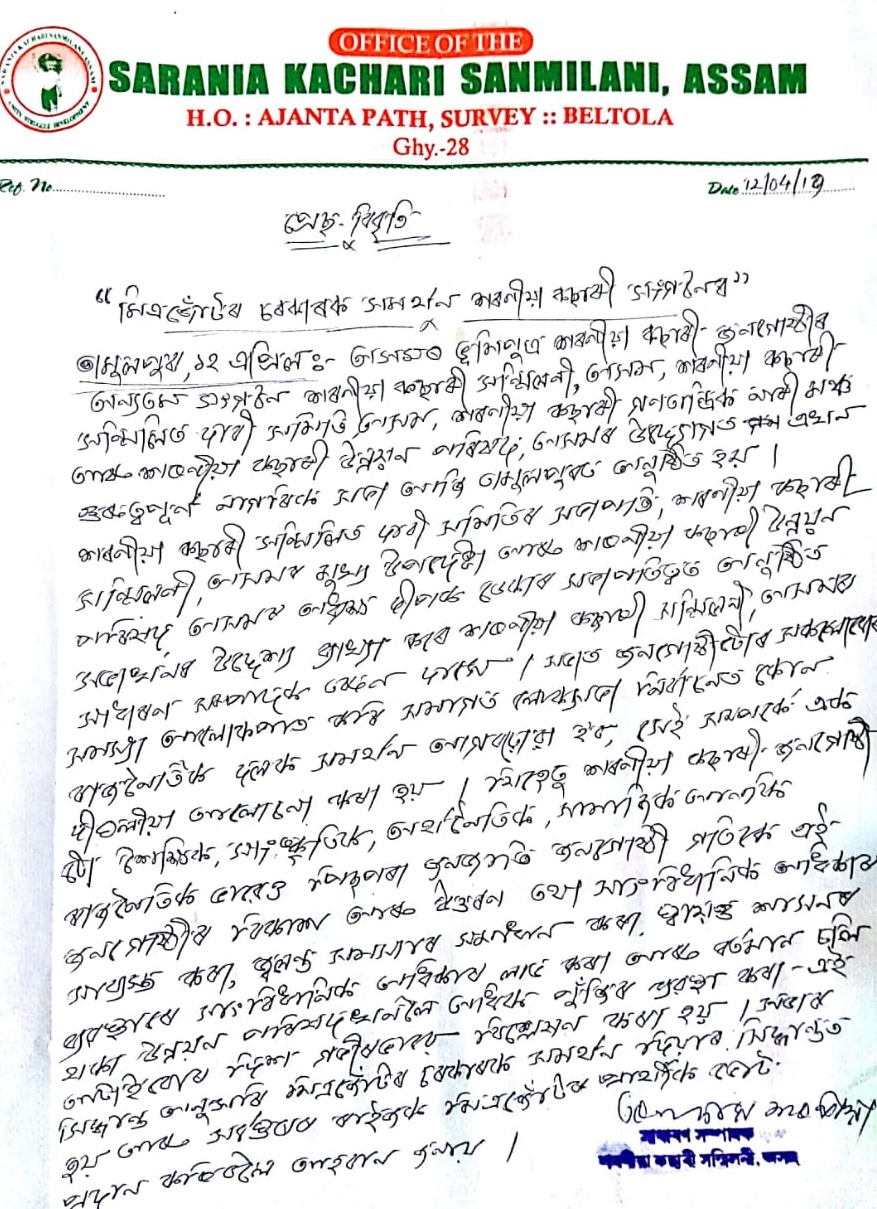 OFFICE OF THE
SARANIA KACHARI SANMILANI, ASSAM
H.O. : AJANTA PATH, SURVEY :: BELTOLA
Ghy.-28
Ref. No.
Date 12/04/19
প্ৰেছ-বিবৃতি
"মিত্ৰজোঁটৰ চৰকাৰক সমৰ্থন শৰণীয়া কছাৰী সংগঠনৰ"
তামুলপুৰ, ১২ এপ্ৰিল ঃ- অসমৰ ভূমিপুত্ৰ শৰণীয়া কছাৰী জনগোষ্ঠীৰ
অন্যতম সংগঠন শৰণীয়া কছাৰী সন্মিলনী, অসম, শৰণীয়া কছাৰী
সন্মিলিত দাবী সমিতি অসম, শৰণীয়া কছাৰী গণতান্ত্ৰিক নাৰী মঞ্চ
আৰু শৰণীয়া কছাৰী উন্নয়ন পৰিষদ, অসমৰ উদ্যোগত এখন
গুৰুত্বপূৰ্ণ নাগৰিক সভা আজি তামুলপুৰত অনুষ্ঠিত হয় ।
শৰণীয়া কছাৰী সন্মিলিত দাবী সমিতিৰ সভাপতি, শৰণীয়া কছাৰী
সন্মিলনী, অসমৰ মুখ্য উপদেষ্টা আৰু শৰণীয়া কছাৰী উন্নয়ন
পৰিষদ, অসমৰ অধ্যক্ষ দীপক ডেকাৰ সভাপতিত্বত অনুষ্ঠিত
সভাখনৰ উদ্দেশ্য ব্যাখ্যা কৰে শৰণীয়া কছাৰী সন্মিলনী, অসমৰ
সাধাৰণ সম্পাদক দাসে । সভাত জনগোষ্ঠীটোৰ
সমস্যা আলোকপাত কৰি সমাগত লোকসভা নিৰ্বাচনত কোন
ৰাজনৈতিক দলক সমৰ্থন আগবঢ়োৱা হ'ব, সেই সন্দৰ্ভে এক
দীঘলীয়া আলোচনা কৰা হয় । যিহেতু শৰণীয়া কছাৰী জনগোষ্ঠী
টো শৈক্ষিক, সাংস্কৃতিক, অৰ্থনৈতিক, সামাজিক আনকি
ৰাজনৈতিক ভাৱেও পিছপৰা জনজাতি জনগোষ্ঠী গতিকে এই
জনগোষ্ঠীৰ বিকাশ আৰু উত্তৰণ তথা সাংবিধানিক অধিকাৰ
সাব্যস্ত কৰা, জ্বলন্ত সমস্যাৰ সমাধান কৰা, স্বায়ত্ত শাসনৰ
ব্যৱস্থাৰে সাংবিধানিক অধিকাৰ লাভ কৰা আৰু বৰ্তমান চলি
থকা উন্নয়ন পৰিষদখনলৈ অধিক পুঁজিৰ ব্যৱস্থা কৰা - এই
আটাইবোৰ দিশ গভীৰভাৱে বিশ্লেষণ কৰা হয় । সভাৰ
সিদ্ধান্ত অনুসৰি মিত্ৰজোঁটৰ চৰকাৰক সমৰ্থন দিয়াৰ সিদ্ধান্ত
হয় আৰু সমস্তৰে ৰাইজক মিত্ৰজোঁটৰ প্ৰাৰ্থীক ভোট
প্ৰদান কৰিবলৈ আহ্বান জনায় ।
সাধাৰণ সম্পাদক
শৰণীয়া কছাৰী সন্মিলনী, অসম